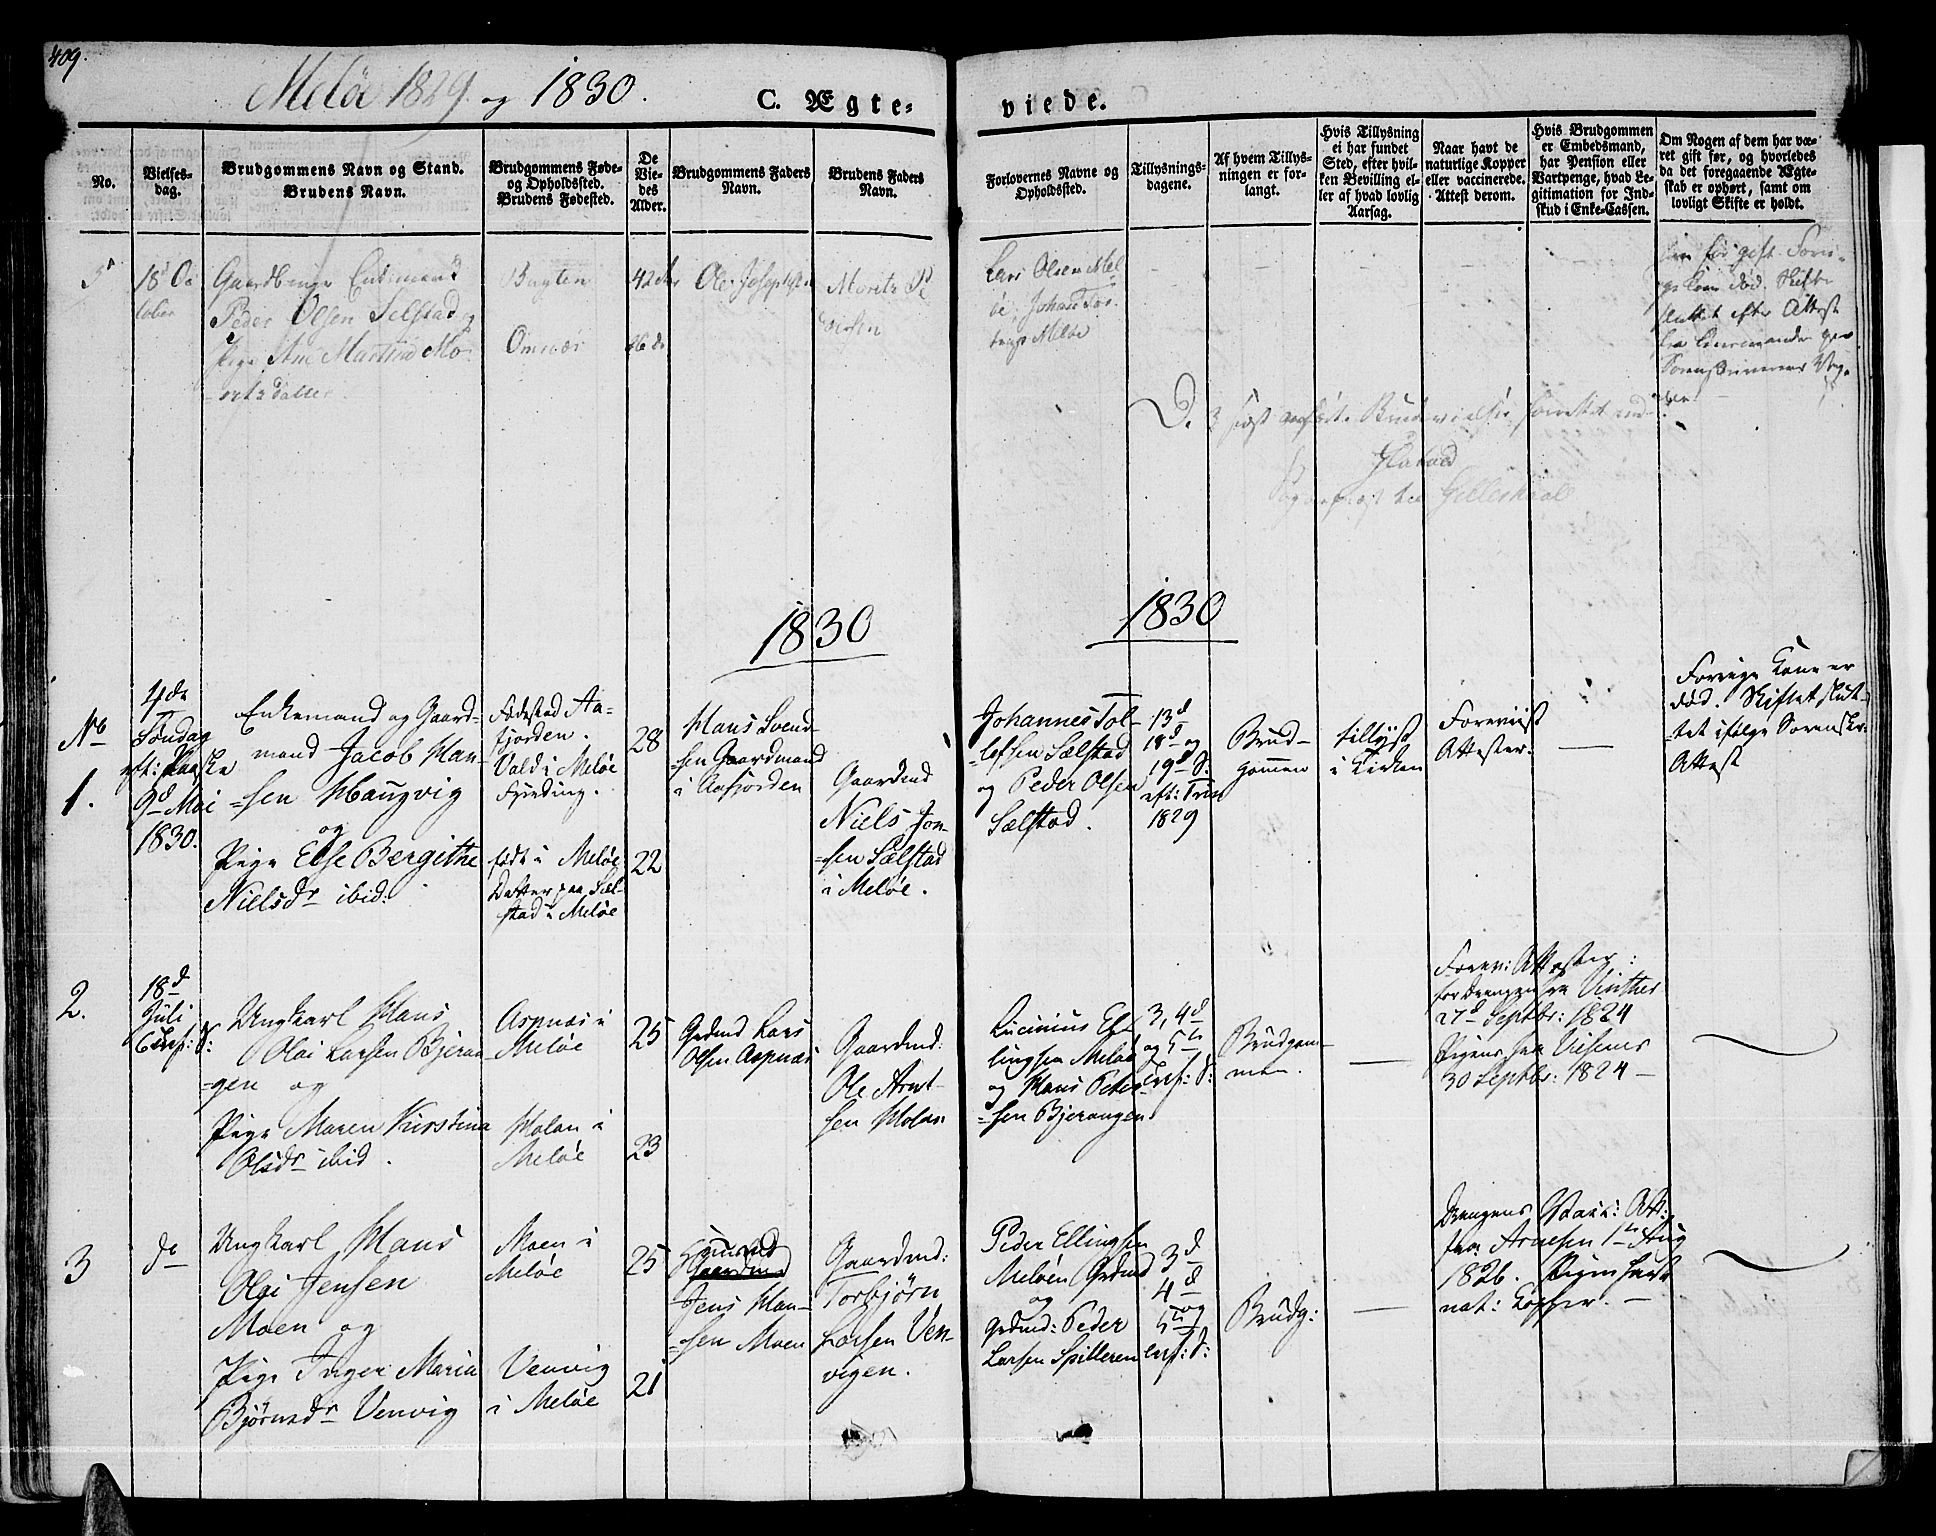 409.
Meløe 1829 og 1830.
C. Ægte-
viede.
No.
Vielses-
dag.
Brudgommens Navn og Stand.
Brudens Navn.
Brudgommens Føde-
og Opholdssted.
Brudens Fødested.
De
Vie-
des
Alder.
Brudgommens Faders
Navn.
Brudens Faders
Navn.
Forlovernes Navne og
Opholdssted.
Tillysnings-
dagene.
Af hvem Tillys-
ningen er for-
langt.
Hvis Tillysning
ei har fundet
Sted, efter hvil-
ken Bevilling el-
ler af hvad lovlig
Aarsag.
Naar havt de
naturlige Kopper
eller vaccinerede.
Attest derom.
Hvis Brudgommen
er Embedsmand,
har Pension eller
Vartpenge, hvad Le-
gitimation for Ind-
skud i Enke-Cassen.
Om Nogen af dem har væ-
ret gift før, og hvorledes
da det foregaaende Ægte-
skab er ophørt, samt om
lovligt Skifte er holdt.
5
18d Oc
tober
Enkemand
Peder Olsen Selstad
Pige Ane Martha Mo-
ritzdatter.
Omnæs
42 Aar
26 do
Ole Josephsen
Moritz Pe
dersen
Lars Olsen Mel-
øe, Johan To-
Meløe
før gift. Forri-
ge Kone død. Skifte
sluttet efter Attest
fra Lensmanden
Sorenskriveren
De 3 sidst anførte Brudevielser forrettet
Sognepræst til Gilleskaal
1830
1830
No
1.
4de
Søndag
eft: Paaske
9d Mai
1830.
Enkemand og Gaard-
mand Jacob Han-
sen Haugvig
og
Pige Else Bergithe
Nielsdr ibid:
Fødested Aa-
fjorden.
Vald i Meløe
Fjerding.
født i Meløe
Datter paa Sæl-
stad i Meløe
28
22
Hans Svend-
sen Gaardmand
i Aafjorden
Gaardmd
Niels Jon-
sen Sælstad
i Meløe.
Johannes Tol-
lefsen Sælstad
og Peder Olsen
Sælstad.
13d
18d og
19d S:
eft: Trin
1829
Brud-
gommen
tillyst
i Kirken
Foreviist
Attester.
Forrige Kone er
død. Skiftet slut-
tet ifølge Sorenskr:
Attest
2.
18d
Juli
6 Trf: S:
Ungkarl Hans
Olai Larsen Bjeran-
gen og
Pige Maren Kirstina
Olsdr ibid.
Aspnæs i
Meløe
Holan i
Meløe
25
23
Grdmd Lars
Olsen Aspnæs
Gaardmd:
Ole Arnt-
sen Holan
Lucinius El-
lingsen Meløe
og Hans Peter-
sen Bjerangen
3, 4d
og 5te
Trf: S:
Brudgom-
men.
Forev: Attester:
for Drengen fra Vinther
27d Septbr: 1824
Pigens fra
30 Septbr: 1824
3
do
Ungkarl Hans
Olai Jensen
Moen og
Pige Inger Maria
Bjørnsdr Venvig
Moen i
Meløe
Venvig
i Meløe
25
21
Huusmd
Gaardmd
Jens Han-
sen Moen
Gaardmd:
Torbjørn
Larsen Ven-
vigen.
Peder Ellingsen
Meløen Grdmd
og
Grdmd: Peder
Larsen Spilleren
3d
4d
og
5te
Trf: S:
Brudg:
Drengens Vacc: Att:
fra Arnesen 1te Aug
1826. Pigen havt
nat: Kopper.